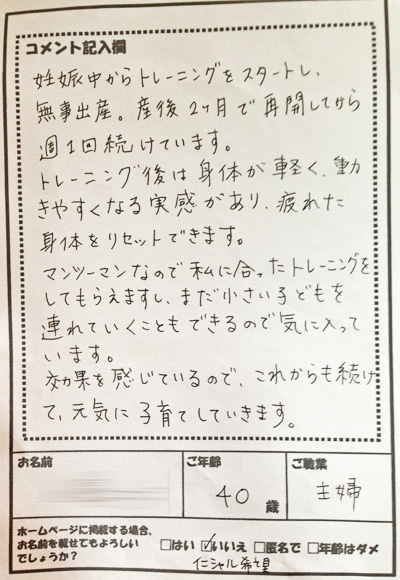 コメント記入欄
妊娠中からトレーニングをスタートし、
無事出産。産後2ヶ月で再開してから
週1回続けています。
トレーニング後は身体が軽く、動
きやすくなる実感があり、疲れた
身体をリセットできます。
マンツーマンなので私に合ったトレーニングを
してもらえますし、まだ小さい子どもを
連れていくこともできるので気に入って
います。
効果を感じているので、これからも続け
て、元気に子育てしていきます。
お名前
ご年齢
40歳
ご職業
主婦
ホームページに掲載する場合、
お名前を載せてもよろしい
でしょうか?
□はい ☑いいえ □匿名で □年齢はダメ
イニシャル希望